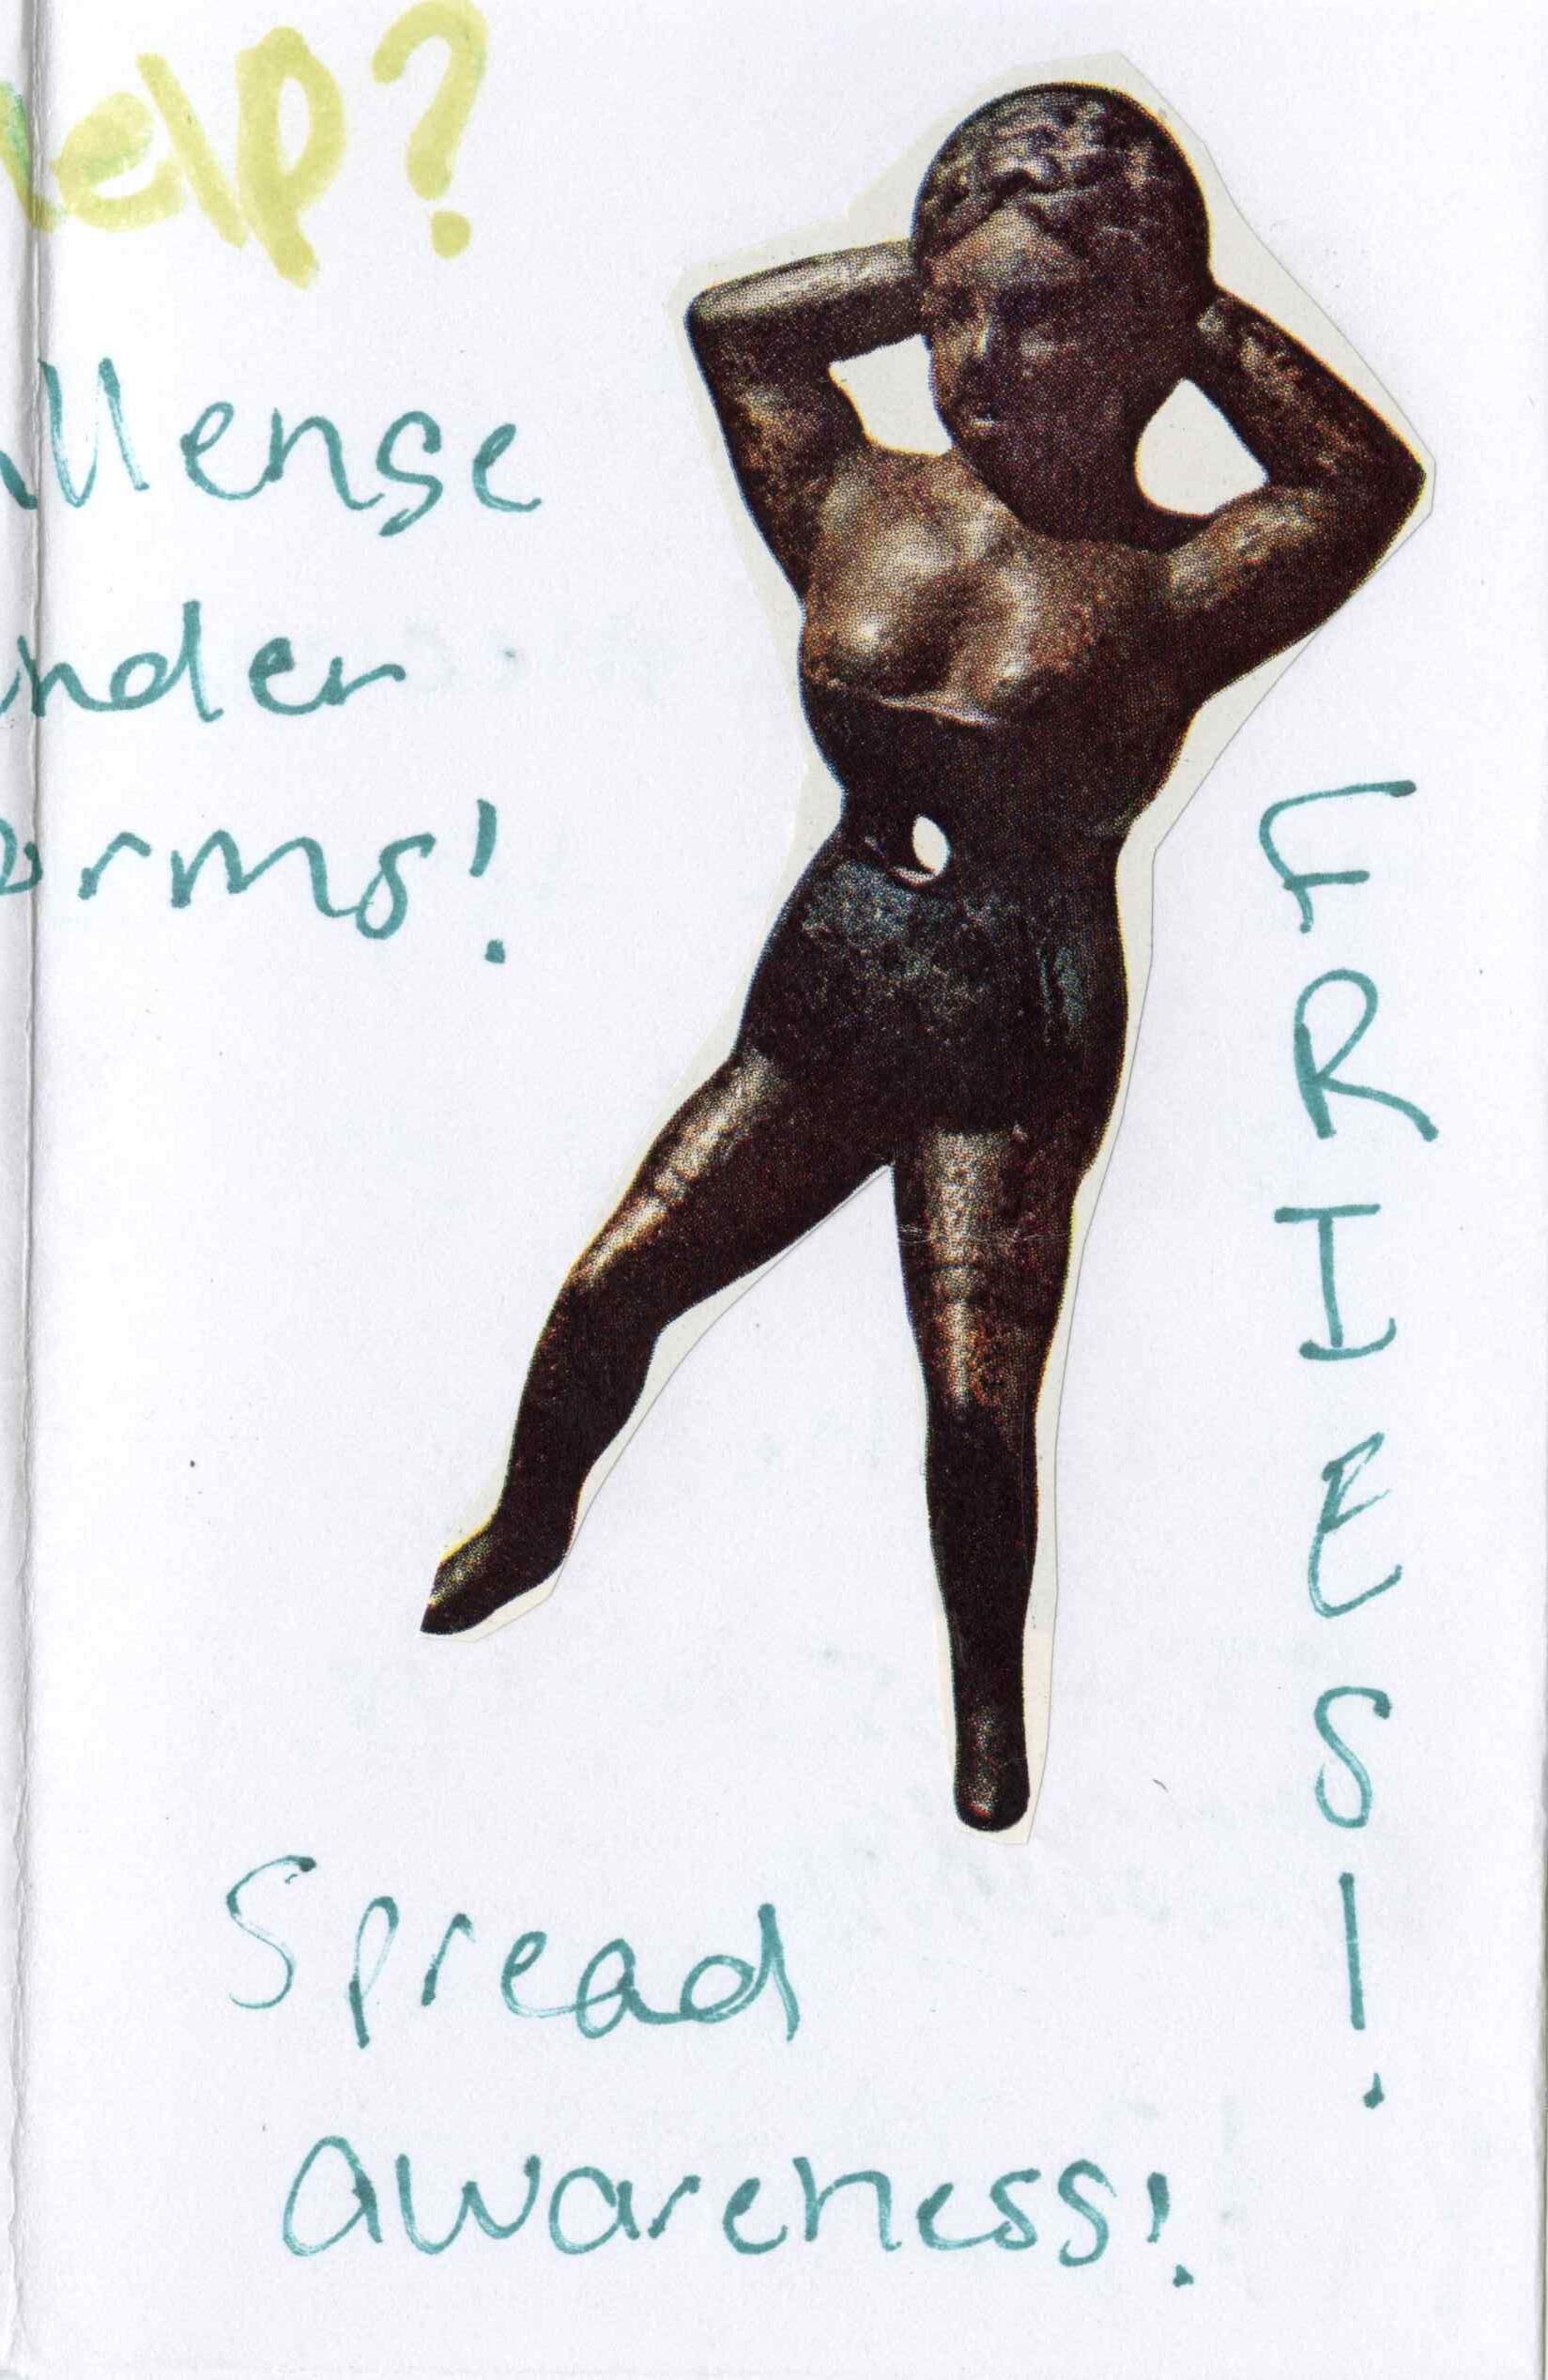 elp?
llenge
nder
orms!
FRIES!
Spread
awareness!